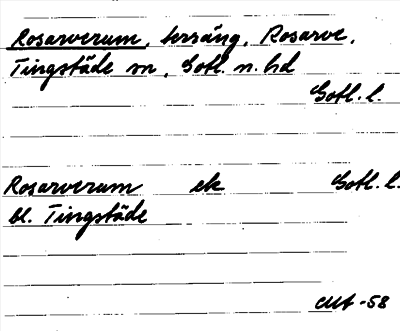 Rosarverum, terräng, Rosarve,
Tingstäde sn, Gotl. n. hd
Gotl. l.
Rosarverum ek Gotl. l.
bl. Tingstäde
CMA -58